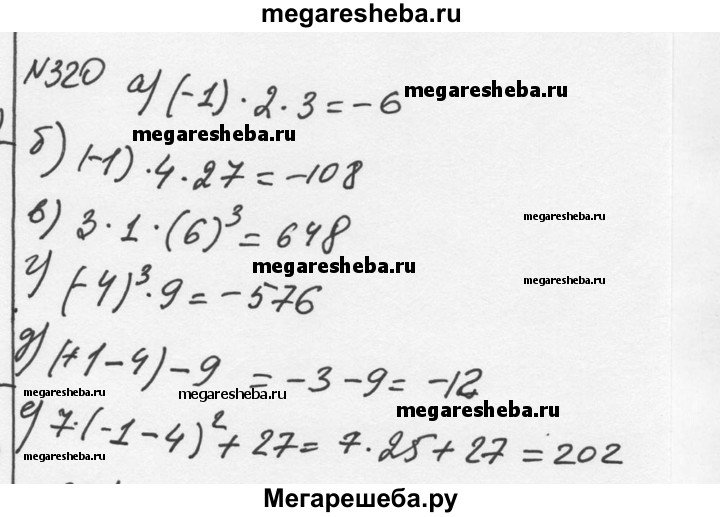 megaresheba.ru
N320 а) (-1) · 2 · 3 = -6 megaresheba.ru
megaresheba.ru
б) (-1) · 4 · 27 = -108
в) 3 · 1 · (6)³ = 648 megaresheba.ru
megaresheba.ru
г) (-4)³ · 9 = -576 megaresheba.ru
д) (+1-4) - 9 = -3 - 9 = -12
megaresheba.ru megaresheba.ru megaresheba.ru
е) 7·(-1-4)² + 27 = 7·25 + 27 = 202
megaresheba.ru
Мегарешеба.ру